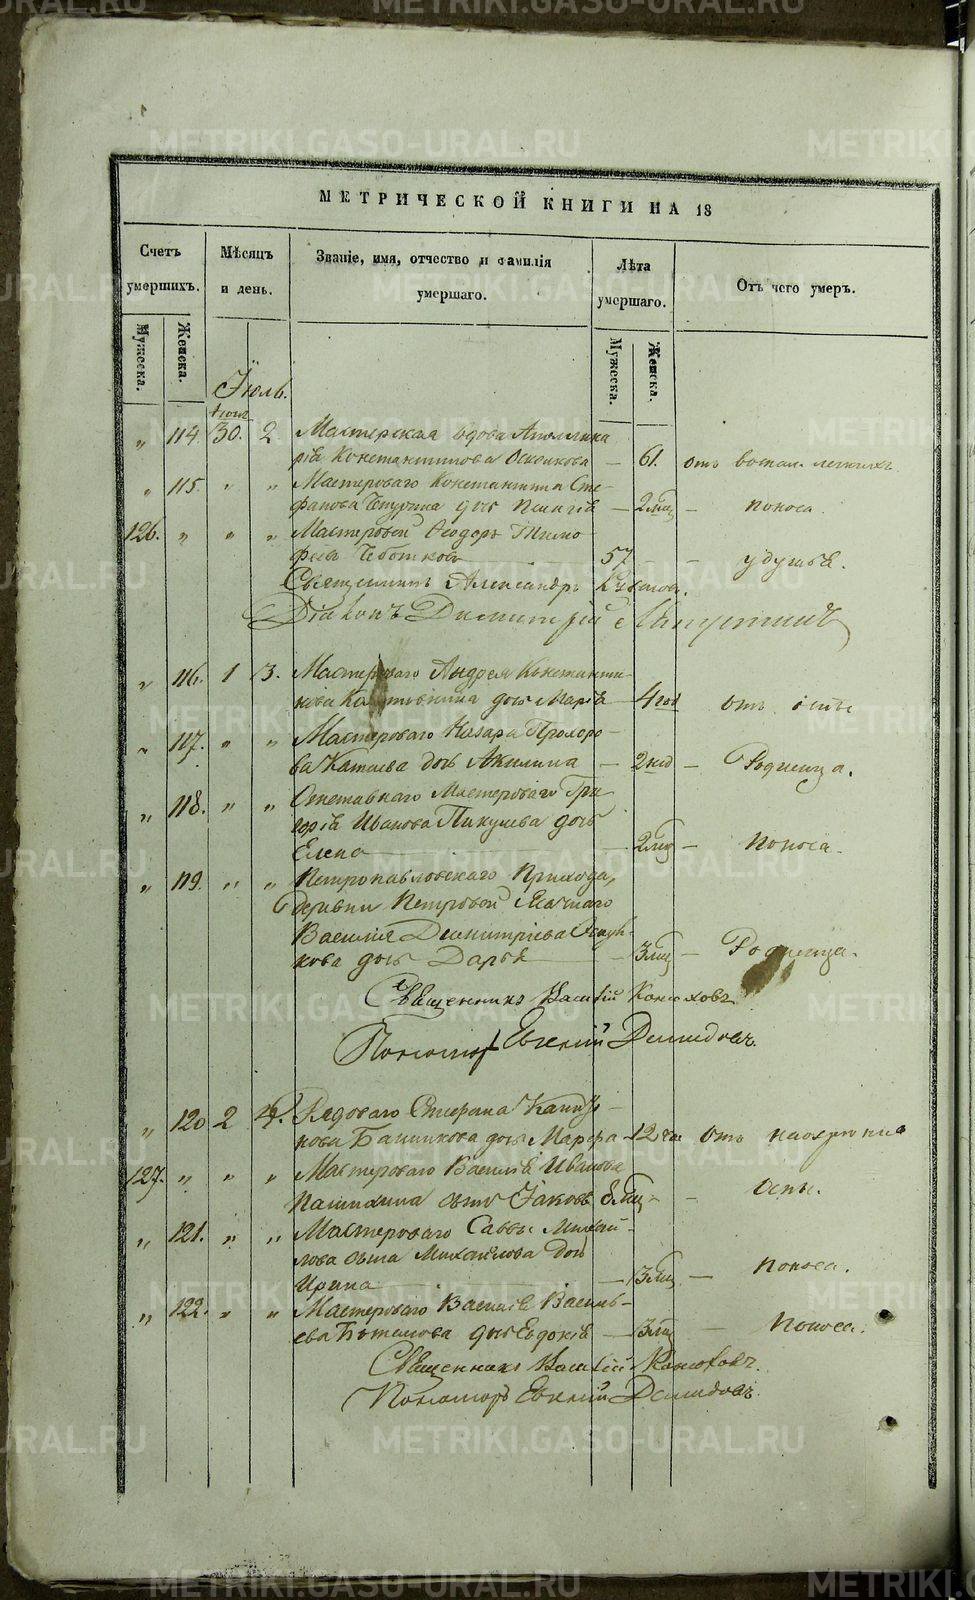 МЕТРИЧЕСКОЙ КНИГИ НА 18
Счетъ умершихъ.
Мѣсяцъ и день.
Званіе, имя, отчество и фамилія умершаго.
Лѣта умершаго.
Отъ чего умеръ.
Мужеска.
Женска.
Мужеска.
Женска.
Іюль.
Іюня
„ 114 30. 2 Мастерская вдова Апполина
рія Константинова — 61. отъ
„ 115. „ „ Мастероваго Константина Сте-
фанова дочь — 2 мѣс — поноса.
126. „ „ „ Мастеровой Ѳеодоръ Тимо
феевъ 57 — удушья.
Священникъ Александръ
Діаконъ Димитрій
„ 116. 1 3. Мастероваго Андрея Константи-
нова дочь Марія — 4 год отъ оспы
„ 117. „ „ Мастероваго Назара Прохоро-
ва Катаева дочь Акилина — 2 нед — Родимца.
„ 118. „ „ Отставнаго Мастероваго Гри
горія Иванова Пикулева дочь
Елена — 2 мѣс — поноса.
„ 119. „ „ Петропавловскаго Прихода,
деревни Петровой
Василія Димитріева
кова дочь Дарья — 3 мѣс — Родимца.
Священникъ Василій Конюховъ.
Пономарь Евгеній Демидовъ.
„ 120 2 4. Рядоваго Стефана
нова Банникова дочь Марѳа — 12 отъ
127. „ „ „ Мастероваго Василія Иванова
сынъ Іаковъ 8 мѣс — Оспы.
„ 121. „ „ Мастероваго Саввы Михай-
лова сына Михайлова дочь
Ирина — 3 мѣс — поноса.
„ 122. „ „ Мастероваго Василія Василь-
ева дочь Евдокія — 3 мѣс — поноса.
Священникъ Василій Конюховъ.
Пономарь Евгеній Демидовъ.
METRIKI.GASO-URAL.RU